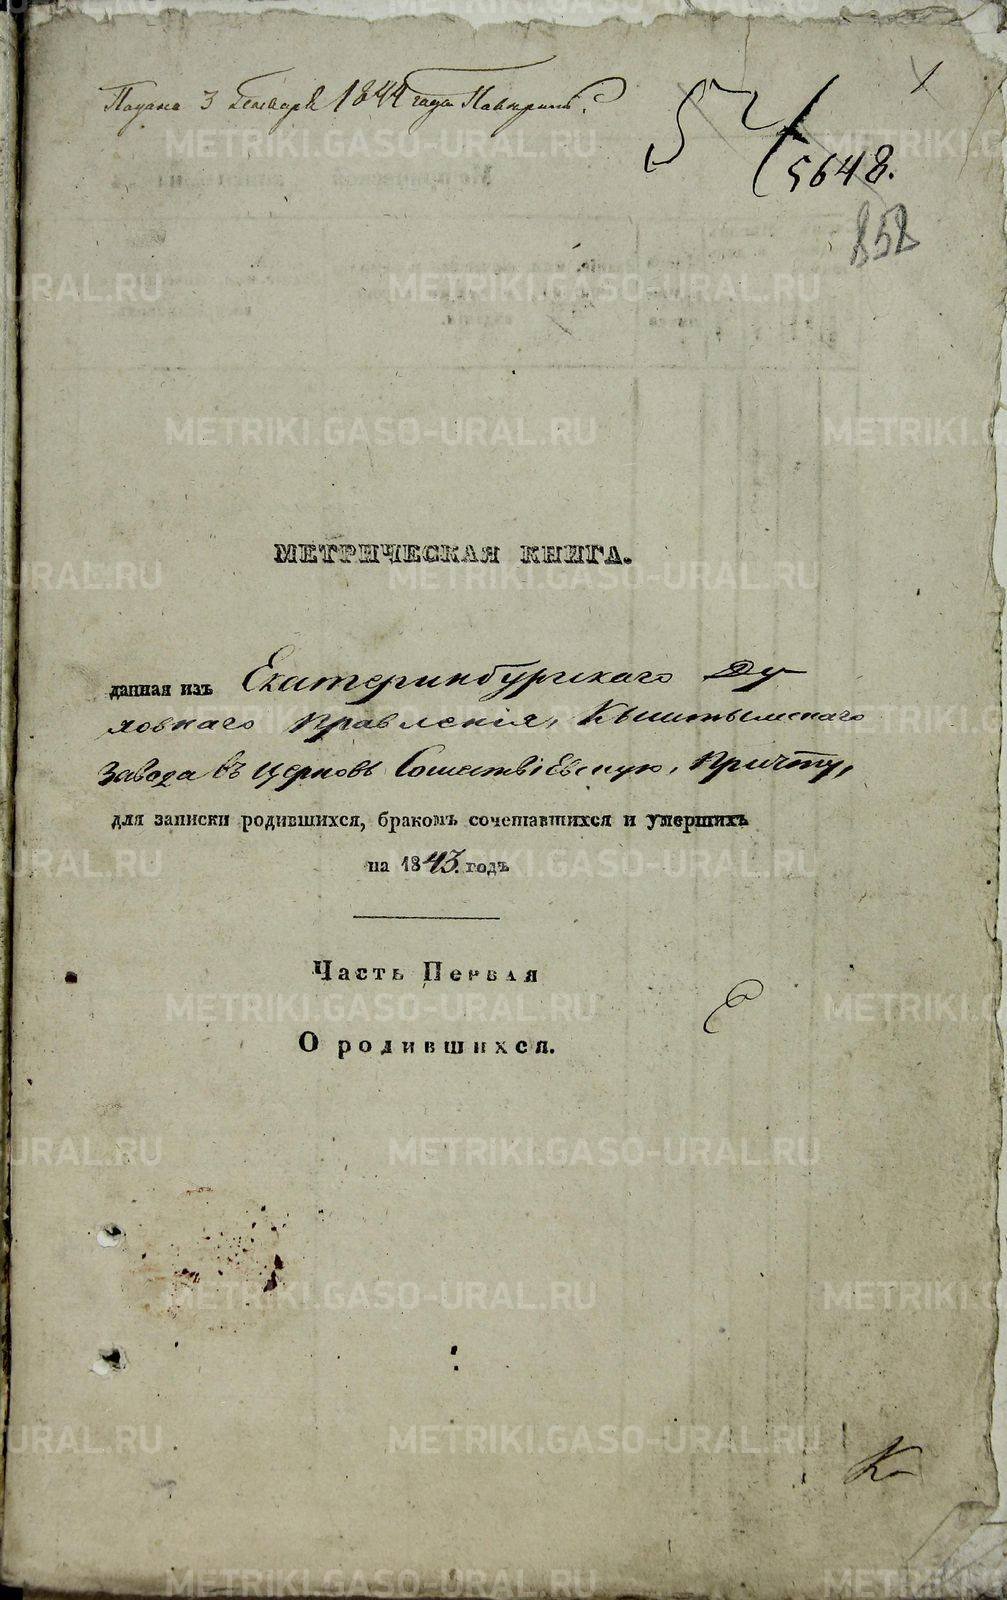 Подана 3 Генваря 1844 года
5648.
858
МЕТРИЧЕСКАЯ КНИГА.
данная изъ Екатеринбургскаго Ду
ховнаго Правленія, Кыштымскаго
Завода въ Церковь Сошествіевскую, Причту,
для записки родившихся, бракомъ сочетавшихся и умершихъ
на 1843. годъ
Часть Первая
О родившихся.
METRIKI.GASO-URAL.RU